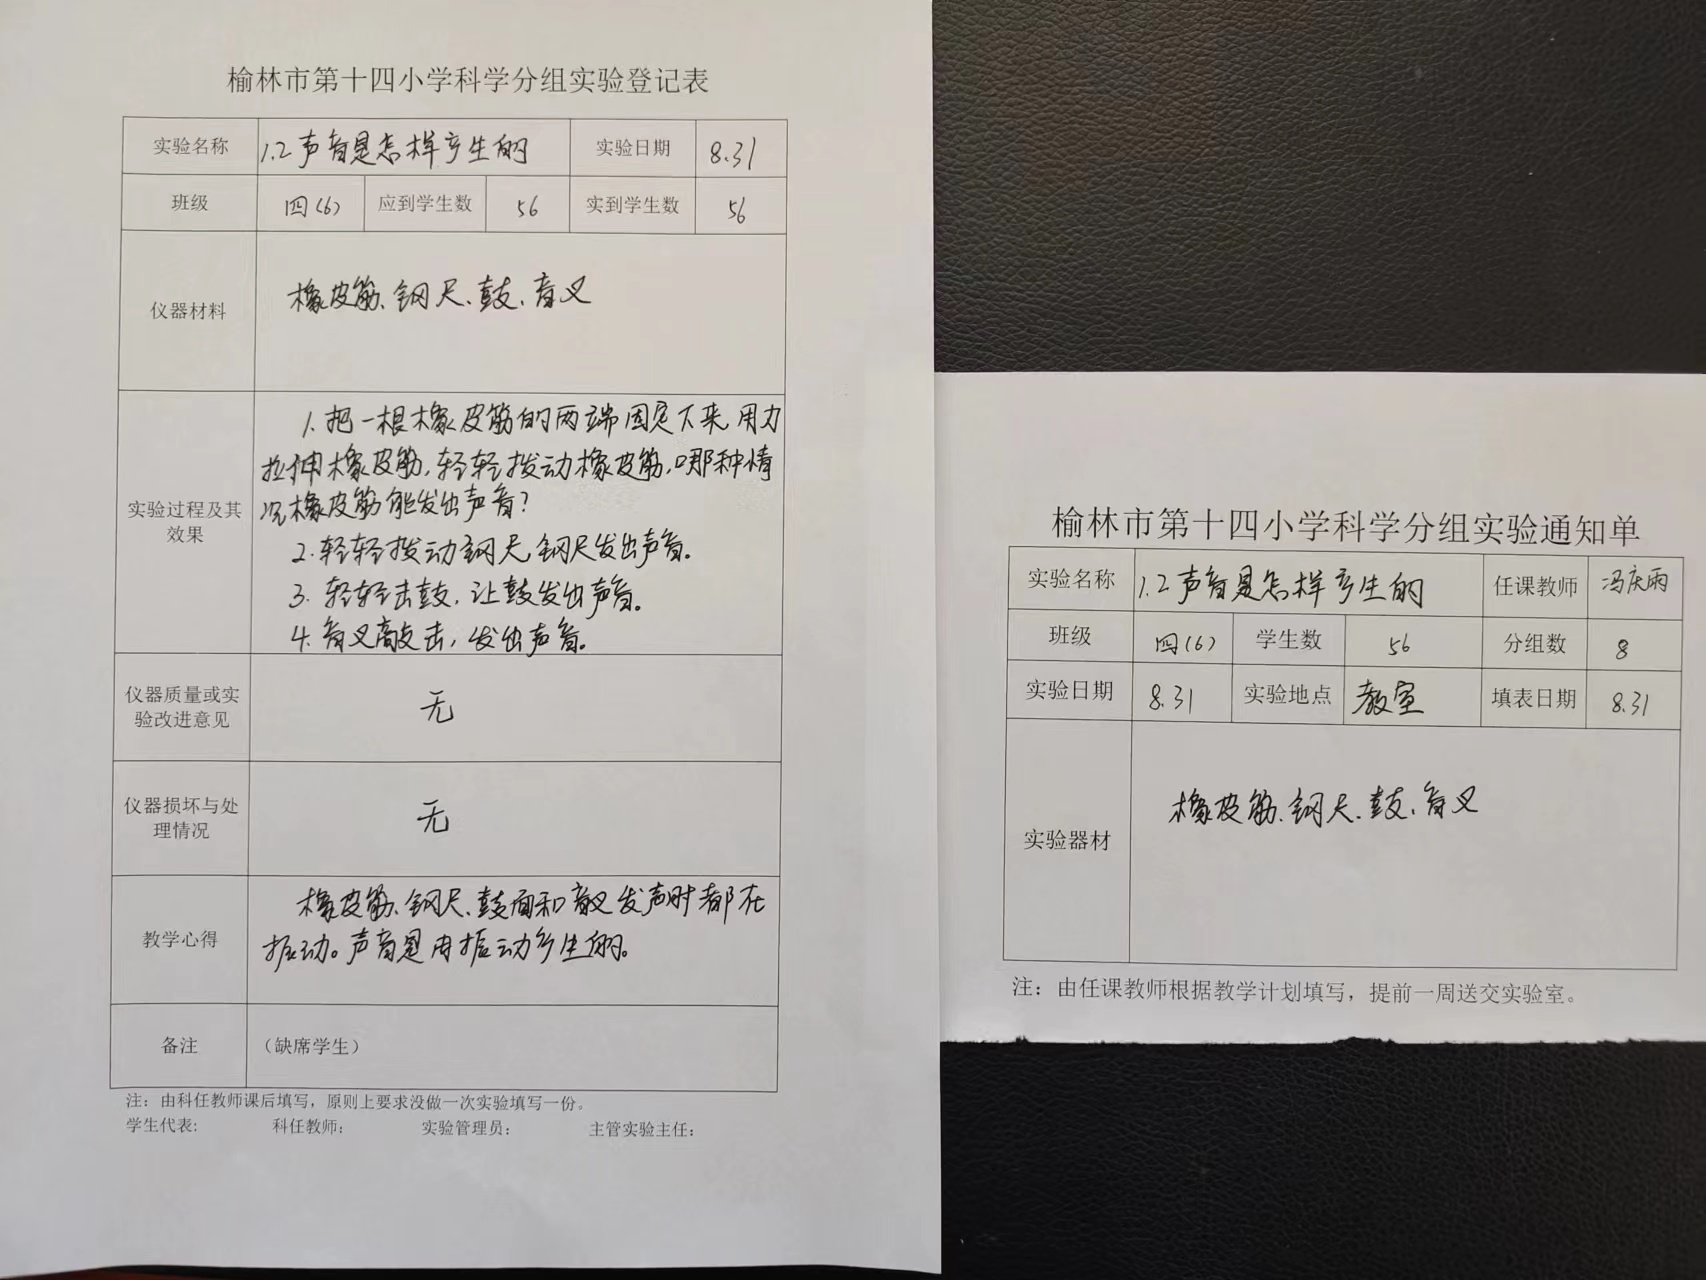 榆林市第十四小学科学分组实验登记表
实验名称 1.2声音是怎样产生的 实验日期 8.31
班级 四(6) 应到学生数 56 实到学生数 56
仪器材料 橡皮筋、钢尺、鼓、音叉
实验过程及其效果
1.把一根橡皮筋的两端固定下来,用力
拉伸橡皮筋,轻轻拨动橡皮筋,哪种情
况橡皮筋能发出声音?
2.轻轻拨动钢尺,钢尺发出声音。
3.轻轻击鼓,让鼓发出声音。
4.音叉敲击,发出声音。
仪器质量或实验改进意见 无
仪器损坏与处理情况 无
教学心得
橡皮筋、钢尺、鼓面和音叉发声时都在
振动。声音是由振动产生的。
备注 (缺席学生)
注:由科任教师课后填写,原则上要求没做一次实验填写一份。
学生代表: 科任教师: 实验管理员: 主管实验主任:
榆林市第十四小学科学分组实验通知单
实验名称 1.2声音是怎样产生的 任课教师 冯庆雨
班级 四(6) 学生数 56 分组数 8
实验日期 8.31 实验地点 教室 填表日期 8.31
实验器材 橡皮筋、钢尺、鼓、音叉
注:由任课教师根据教学计划填写,提前一周送交实验室。